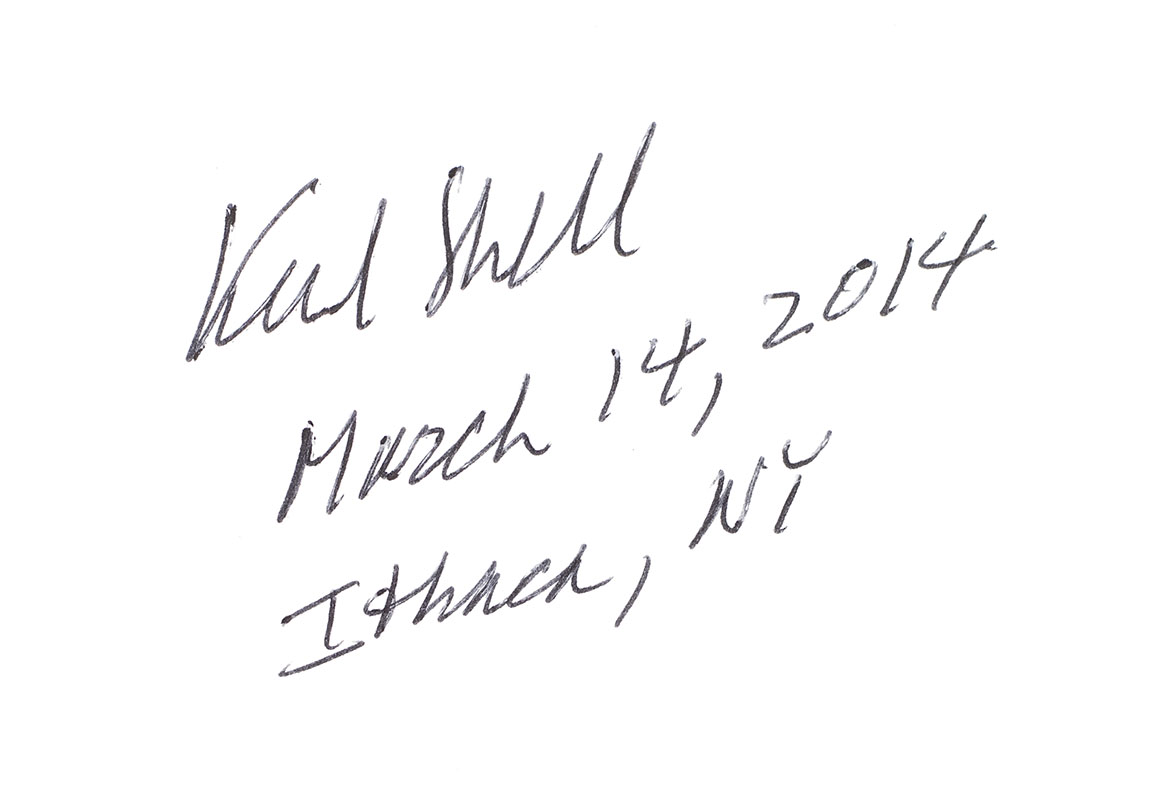 Shell
March 14, 2014
Ithaca, NY